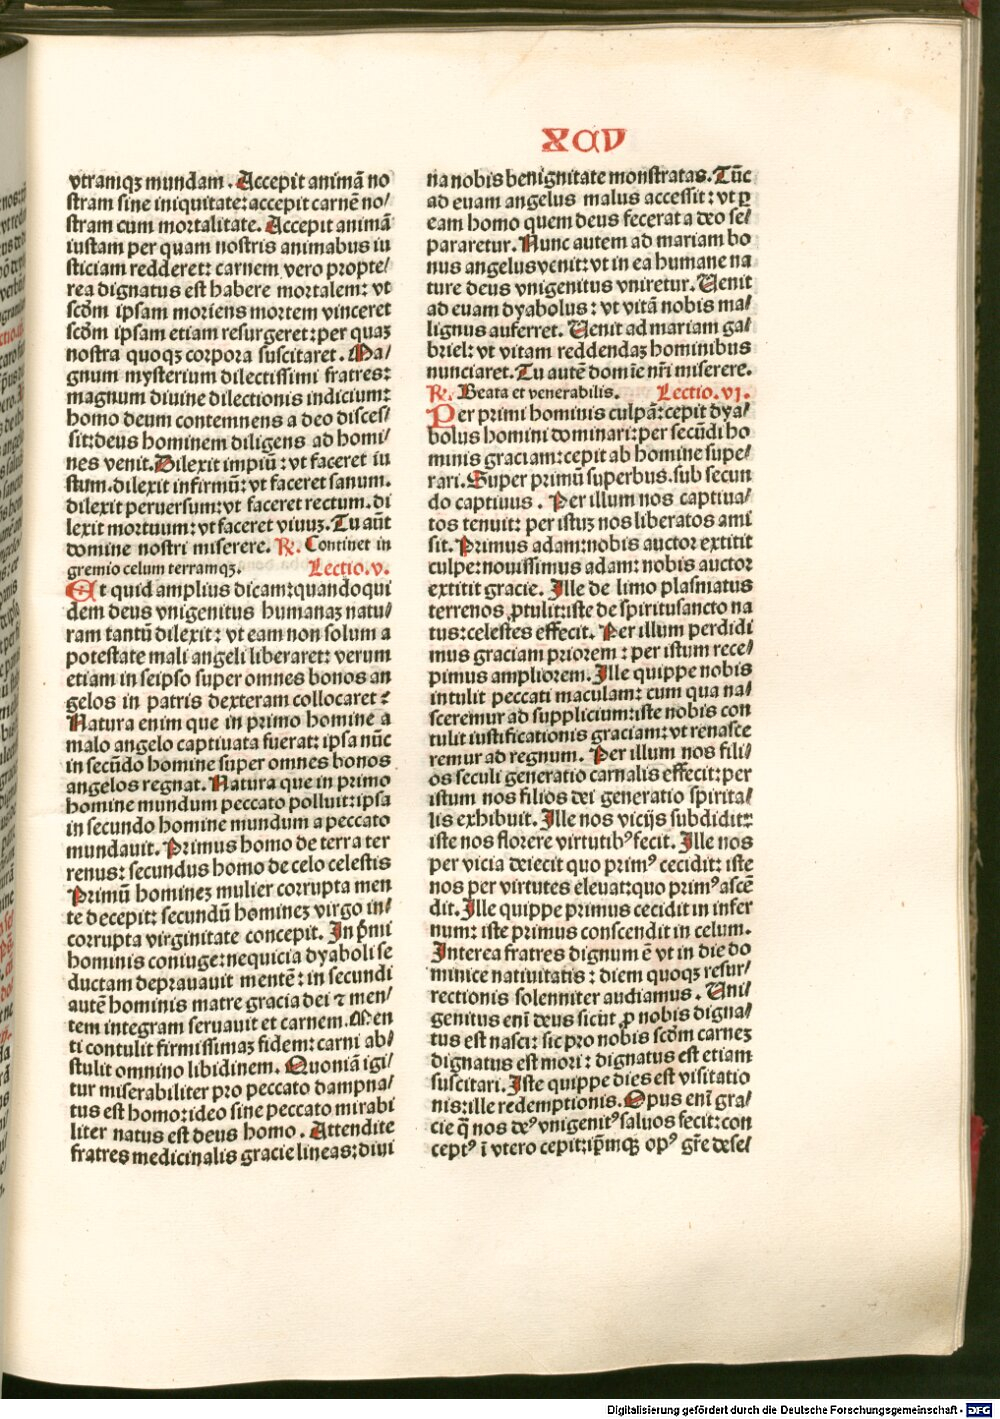 XCV
vtramqꝫ mundam. Accepit animā no/
stram sine iniquitate: accepit carnē no/
stram cum mortalitate. Accepit animā
iustam per quam nostris animabus iu
sticiam redderet: carnem vero propte/
rea dignatus est habere mortalem: vt
scd̄m ipsam moriens mortem vinceret
scd̄m ipsam etiam resurgeret: per quaꝫ
nostra quoqꝫ corpora suscitaret. Ma/
gnum mysterium dilectissimi fratres:
magnum diuine dilectionis indicium:
homo deum contemnens a deo disces/
sit: deus hominem diligens ad homi/
nes venit. Dilexit impiū: vt faceret iu
stum. dilexit infirmū: vt faceret sanum.
dilexit peruersum: vt faceret rectum. di
lexit mortuum: vt faceret viuuꝫ. Tu aūt
domine nostri miserere. R. Continet in
gremio celum terramqꝫ. Lectio.v.
Et quid amplius dicam: quandoqui
dem deus vnigenitus humanaꝫ natu/
ram tantū dilexit: vt eam non solum a
potestate mali angeli liberaret: verum
etiam in seipso super omnes bonos an
gelos in patris dexteram collocaret?
Natura enim que in primo homine a
malo angelo captiuata fuerat: ipsa nūc
in secūdo homine super omnes bonos
angelos regnat. Natura que in primo
homine mundum peccato polluit: ipsa
in secundo homine mundum a peccato
mundauit. Primus homo de terra ter
renus: secundus homo de celo celestis
Primū hominez mulier corrupta men
te decepit: secundū hominez virgo in/
corrupta virginitate concepit. In p̄mi
hominis coniuge: nequicia dyaboli se
ductam deprauauit mentē: in secundi
autē hominis matre gracia dei ⁊ men/
tem integram seruauit et carnem. Men
ti contulit firmissimaꝫ fidem: carni ab/
stulit omnino libidinem. Quoniā igi/
tur miserabiliter pro peccato dampna/
tus est homo: ideo sine peccato mirabi
liter natus est deus homo. Attendite
fratres medicinalis gracie lineas: diui
na nobis benignitate monstratas. Tūc
ad euam angelus malus accessit: vt ꝑ
eam homo quem deus fecerat a deo se/
pararetur. Nunc autem ad mariam bo
nus angelus venit: vt in ea humane na
ture deus vnigenitus vniretur. Uenit
ad euam dyabolus: vt vitā nobis ma/
lignus auferret. Uenit ad mariam ga/
briel: vt vitam reddendaꝫ hominibus
nunciaret. Tu autē domīe nr̄i miserere.
R. Beata et venerabilis. Lectio.vj.
Per primi hominis culpā: cepit dya/
bolus homini dominari: per secūdi ho
minis graciam: cepit ab homine supe/
rari. Super primū superbus. sub secun
do captiuus. Per illum nos captiua/
tos tenuit: per istuꝫ nos liberatos ami
sit. Primus adam: nobis auctor extitit
culpe: nouissimus adam: nobis auctor
extitit gracie. Ille de limo plasmatus
terrenos ꝓtulit: iste de spiritusancto na
tus: celestes effecit. Per illum perdidi
mus graciam priorem: per istum rece/
pimus ampliorem. Ille quippe nobis
intulit peccati maculam: cum qua na/
sceremur ad supplicium: iste nobis con
tulit iustificationis graciam: vt renasce
remur ad regnum. Per illum nos fili/
os seculi generatio carnalis effecit: per
istum nos filios dei generatio spirita/
lis exhibuit. Ille nos vicijs subdidit:
iste nos florere virtutibꝰ fecit. Ille nos
per vicia deiecit quo primꝰ cecidit: iste
nos per virtutes eleuat: quo primꝰ ascē
dit. Ille quippe primus cecidit in infer
num: iste primus conscendit in celum.
Interea fratres dignum ē vt in die do
minice natiuitatis: diem quoqꝫ resur/
rectionis solenniter audiamus. Uni/
genitus enī deus sicut ꝓ nobis digna/
tus est nasci: sic pro nobis scd̄m carneꝫ
dignatus est mori: dignatus est etiam
suscitari. Iste quippe dies est visitatio
nis: ille redemptionis. Opus enī gra/
cie q̄ nos deꝰ vnigenitꝰ saluos fecit: con
ceptꝰ ī vtero cepit: ip̄mqꝫ opꝰ gr̄e desei/
Digitalisierung gefördert durch die Deutsche Forschungsgemeinschaft - DFG